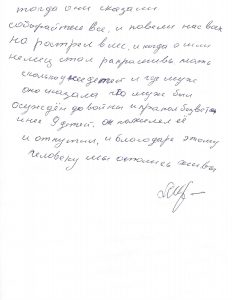 тогда они сказали
собирайтесь все, и повели нас всех
на росстрел в лес, и когда они шли
немец стал распрашивать маму
сколько у неё детей и где муж
она сказала что муж был
осуждён до войны и пропал безвести
и нее 9 детей. он пожалел её
и отпустил, и благодаря этому
человеку мы остались живы